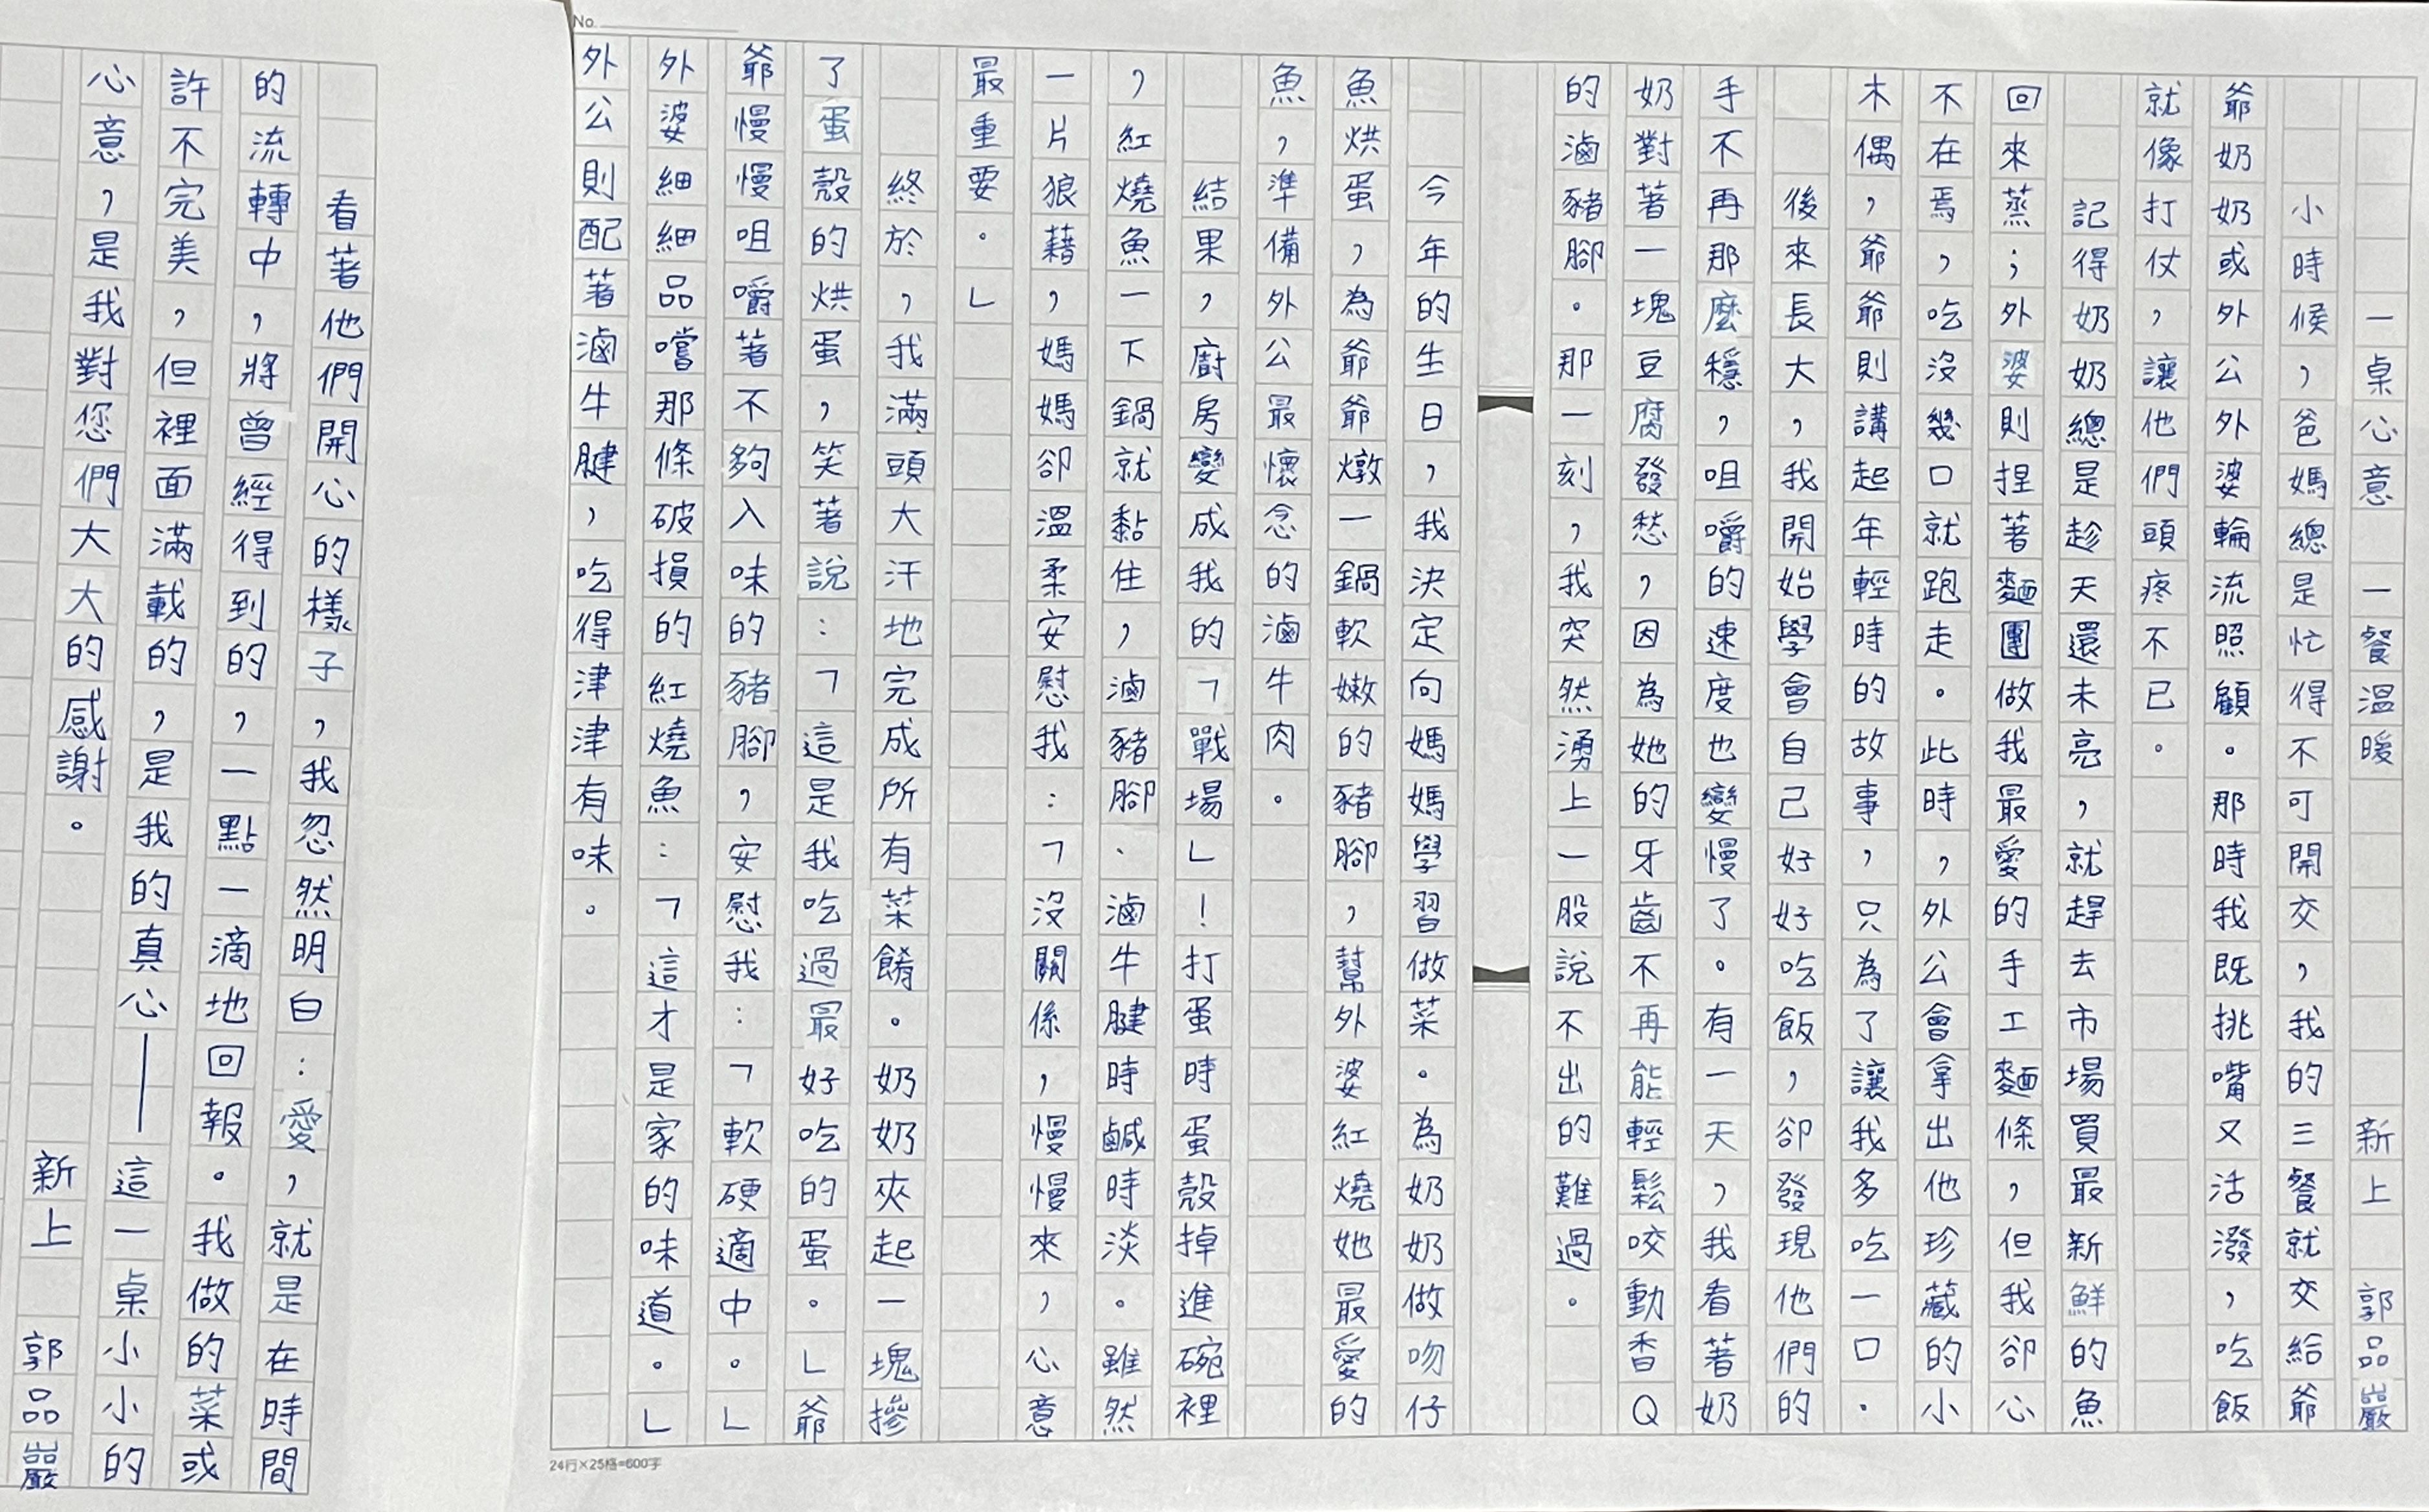 一桌心意　一餐溫暖　　　　　　新上　郭品巖
小時候，爸媽總是忙得不可開交，我的三餐就交給爺
爺奶奶或外公外婆輪流照顧。那時我既挑嘴又活潑，吃飯
就像打仗，讓他們頭疼不已。
記得奶奶總是趁天還未亮，就趕去市場買最新鮮的魚
回來蒸；外婆則捏著麵團做我最愛的手工麵條，但我卻心
不在焉，吃沒幾口就跑走。此時，外公會拿出他珍藏的小
木偶，爺爺則講起年輕時的故事，只為了讓我多吃一口．
後來長大，我開始學會自己好好吃飯，卻發現他們的
手不再那麼穩，咀嚼的速度也變慢了。有一天，我看著奶
奶對著一塊豆腐發愁，因為她的牙齒不再能輕鬆咬動香Q
的滷豬腳。那一刻，我突然湧上一股說不出的難過。
今年的生日，我決定向媽媽學習做菜。為奶奶做吻仔
魚烘蛋，為爺爺燉一鍋軟嫩的豬腳，幫外婆紅燒她最愛的
魚，準備外公最懷念的滷牛肉。
結果，廚房變成我的「戰場」！打蛋時蛋殼掉進碗裡
，紅燒魚一下鍋就黏住，滷豬腳、滷牛腱時鹹時淡。雖然
一片狼藉，媽媽卻溫柔安慰我：「沒關係，慢慢來，心意
最重要。」
終於，我滿頭大汗地完成所有菜餚。奶奶夾起一塊摻
了蛋殼的烘蛋，笑著說：「這是我吃過最好吃的蛋。」爺
爺慢慢咀嚼著不夠入味的豬腳，安慰我：「軟硬適中。」
外婆細細品嚐那條破損的紅燒魚：「這才是家的味道。」
外公則配著滷牛腱，吃得津津有味。
看著他們開心的樣子，我忽然明白：愛，就是在時間
的流轉中，將曾經得到的，一點一滴地回報。我做的菜或
許不完美，但裡面滿載的，是我的真心——這一桌小小的
心意，是我對您們大大的感謝。
新上　郭品巖
No.
24行×25格=600字